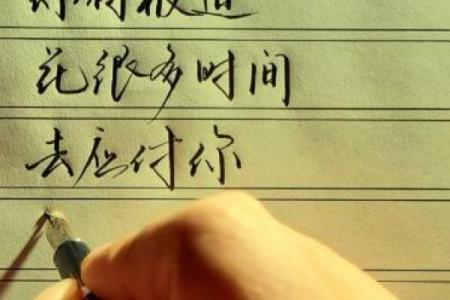 花很多时间
去应付你